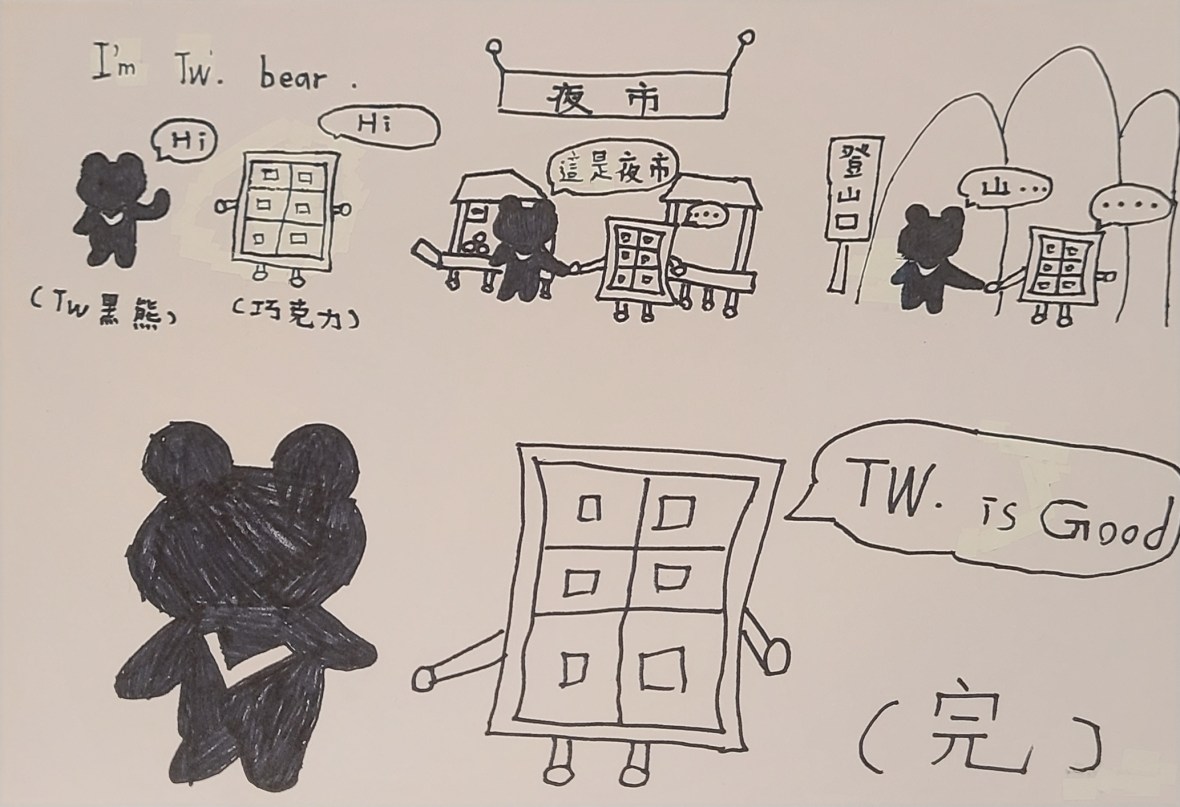 I'm TW. bear.
Hi
Hi
(TW黑熊)
(巧克力)
夜市
這是夜市
...
登山口
山...
....
TW. is Good
(完)